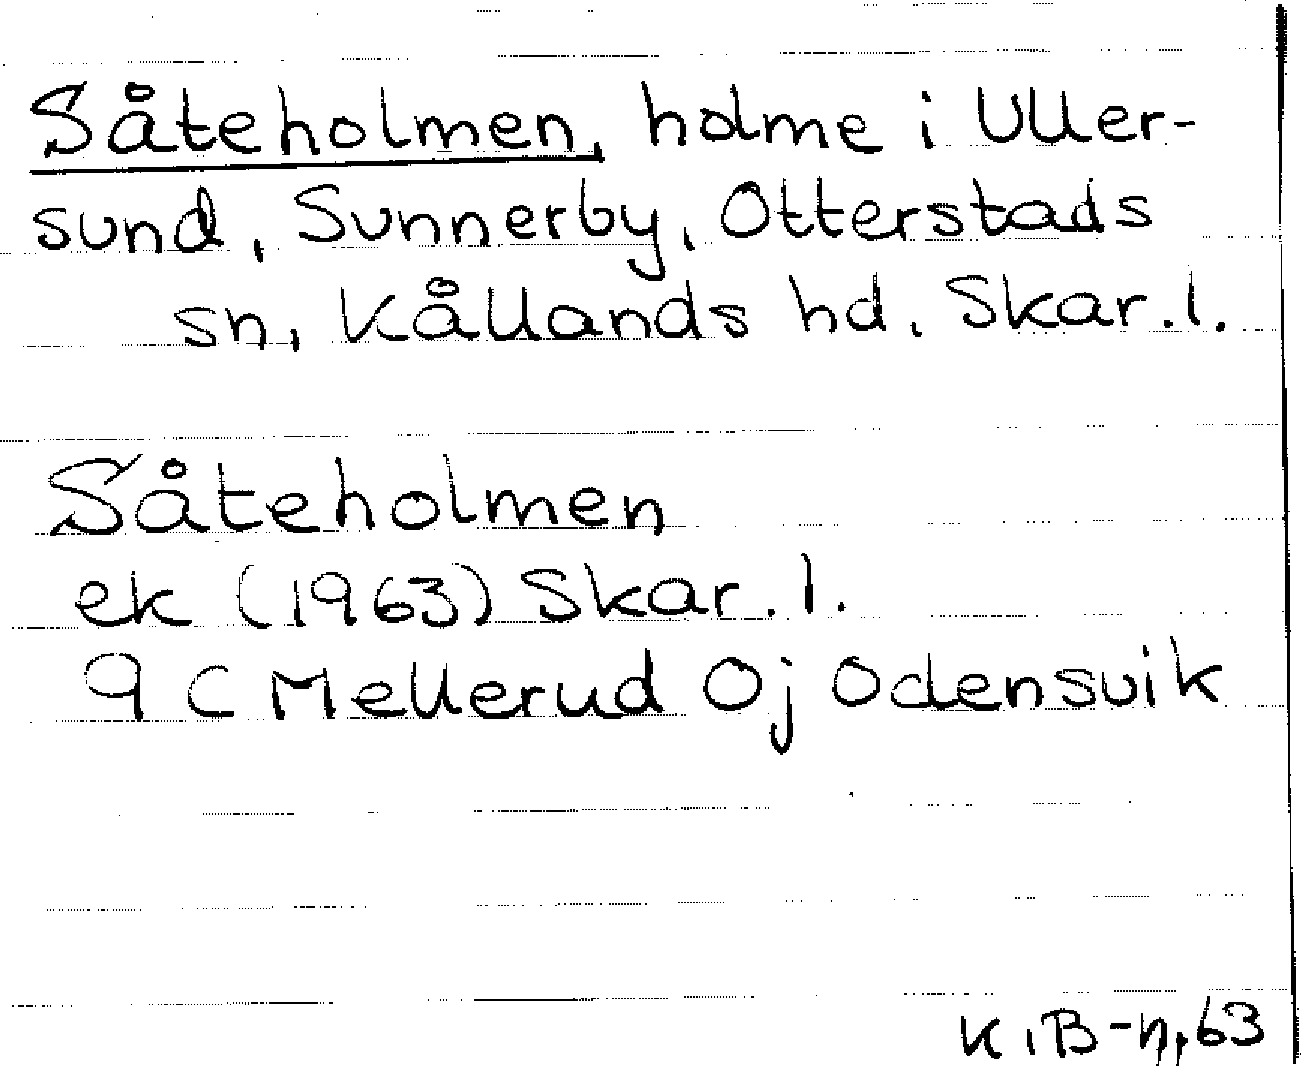 Såteholmen, holme i Uller-
sund, Sunnerby, Otterstads
sn, Kållands hd, Skar.l.
Såteholmen
ek (1963) Skar.l.
9 C Mellerud Oj Odensvik
K.B-n, 63